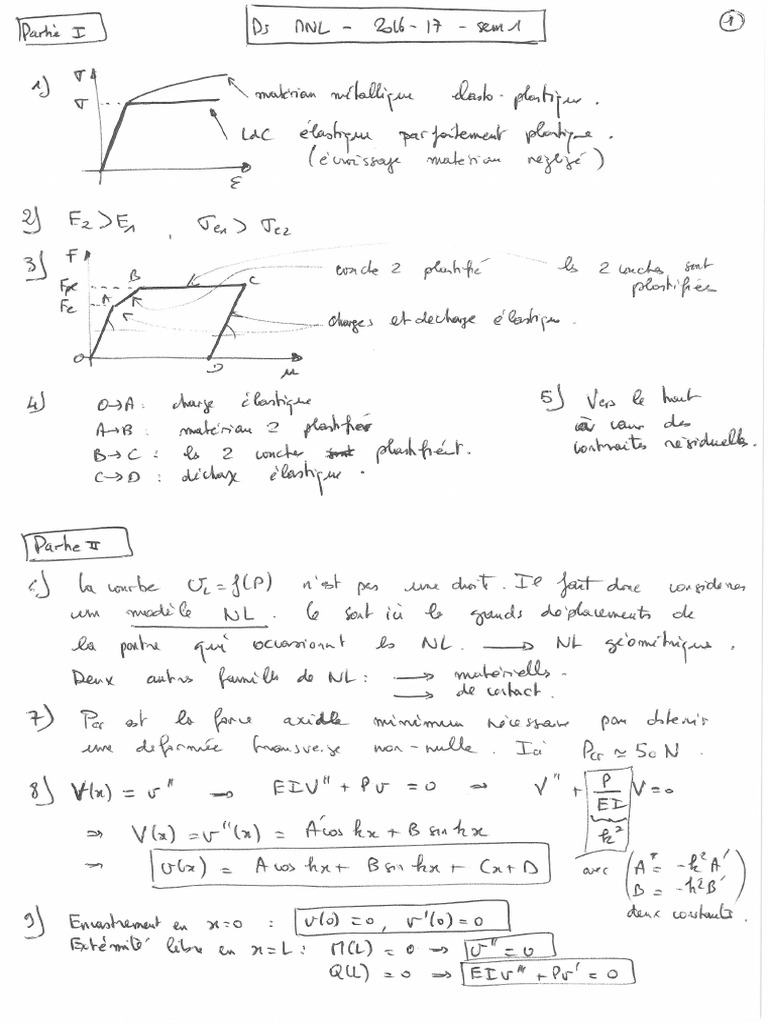 Partie I
Ds MNL - 2016-17 - sem 1
1
1) σ
σ
ε
matériau métallique élasto-plastique.
LdC élastique parfaitement plastique.
(écrouissage matériau négligé)
2) E2>E1 , σe1 > σe2
3) F
B
C
A
O
D
u
couche 2 plastifié
les 2 couches sont
plastifiées
charges et décharge élastique.
4) O→A : charge élastique
A→B : matériau 2 plastifié
B→C : les 2 couches plastifient.
C→D : décharge élastique.
5) Vers le haut
à cause des
contraintes résiduelles.
Partie II
6) la courbe VL = f(P) n'est pas une droite. Il faut donc considérer
un modèle NL. Ce sont ici les grands déplacements de
la poutre qui occasionnent les NL. → NL géométrique.
Deux autres familles de NL : → matérielles.
→ de contact.
7) Pcr est la force axiale minimum nécessaire pour obtenir
une déformée transverse non-nulle. Ici Pcr ≃ 50 N.
8) V(x) = v'' → EIV'' + Pv = 0 → V'' + P/EI V = 0
k²
⇒ V(x) = v''(x) = A'cos kx + B sin kx
→ v(x) = A cos kx + B sin kx + Cx + D
avec (A" = -k²A'
B = -k²B')
deux constantes.
9) Encastrement en x=0 : v(0) = 0, v'(0) = 0
Extrémité libre en x=L : M(L) = 0 → v'' = 0
Q(L) = 0 → EIv''' + Pv' = 0